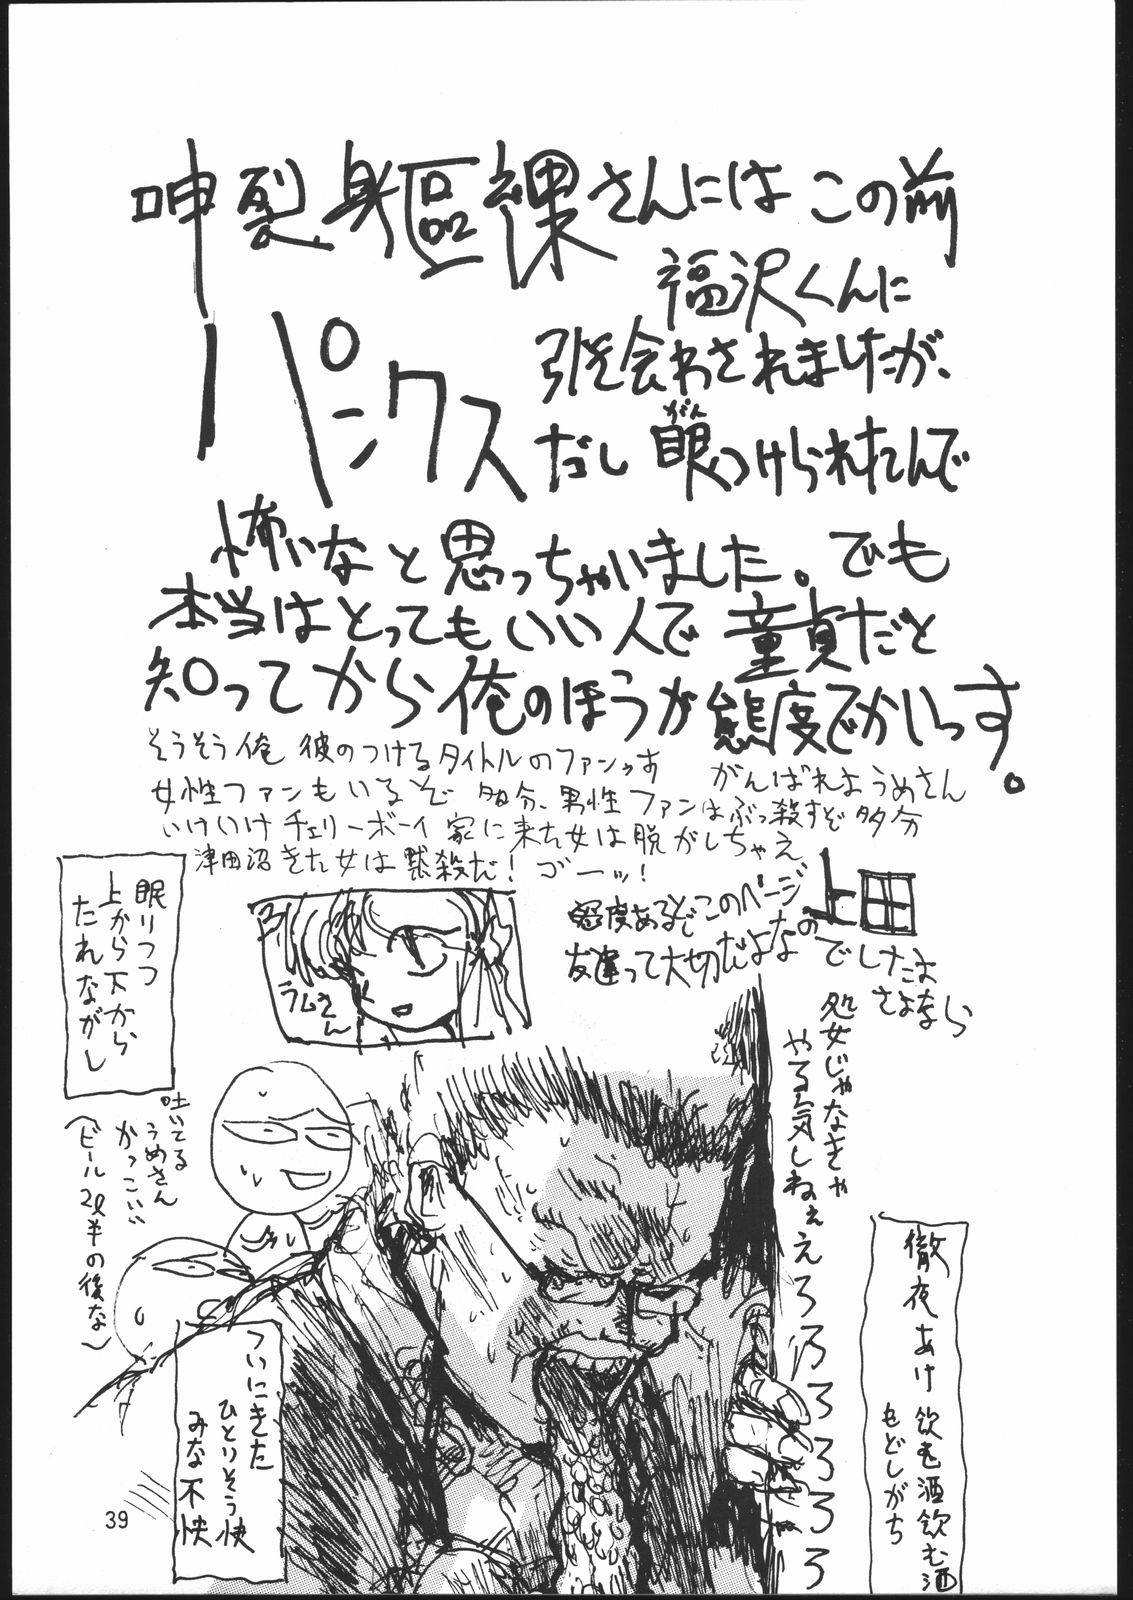 呻裂身軀裸さんには この前
福沢くんに
引き会わされましたが、
パンクス だし 眼つけられたんで
がん
怖いなと思っちゃいました。でも
本当はとってもいい人で 童貞だと
知ってから俺のほうが態度でかいっす。
そうそう俺 彼のつけるタイトルのファンっす
がんばれようめさん
女性ファンもいるぞ 多分、男性ファンはぶっ殺すぞ多分
いけいけ チェリーボーイ 家に来た女は脱がしちゃえ
津田沼きた女は黙殺だ！ ゴーッ！
態度あるぞこのページ
友達って大切だよなの
上田
でしたよ
さよなら
ラムさん
眠りつつ
上から下から
たれながし
吐いてる
うめさん
かっこいい
（ビール2ℓ半の後な）
処女じゃなきゃ
やる気しねぇえろろろろろろろ
徹夜あけ 飲む酒飲む酒
もどしがち
ついにきた
ひとりそう快
みな不快
39